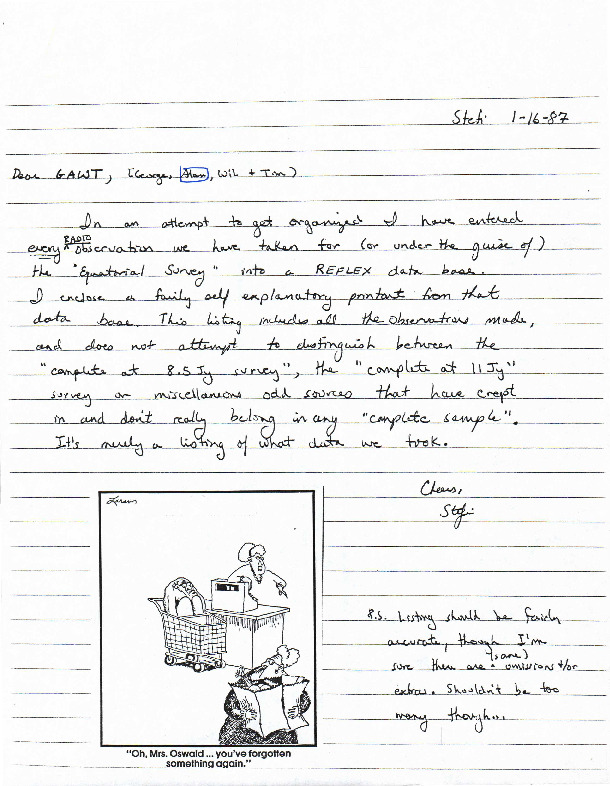 Stefi 1-16-87
Dear GAWT, (George, Alan, Wil + Tim)
In an attempt to get organized I have entered
every RADIO observation we have taken for (or under the guise of)
the "Equatorial Survey" into a REFLEX data base.
I enclose a fairly self explanatory printout from that
data base. This listing includes all the observations made,
and does not attempt to distinguish between the
"complete at 8.5 Jy survey", the "complete at 11 Jy"
survey or miscellaneous odd sources that have crept
in and don't really belong in any "complete sample".
It's merely a listing of what data we took.
Cheers,
Stefi
Larson
P.S. Listing should be fairly
accurate, though I'm
sure there are (some) omissions +/or
extras. Shouldn't be too
many though...
"Oh, Mrs. Oswald ... you've forgotten
something again."